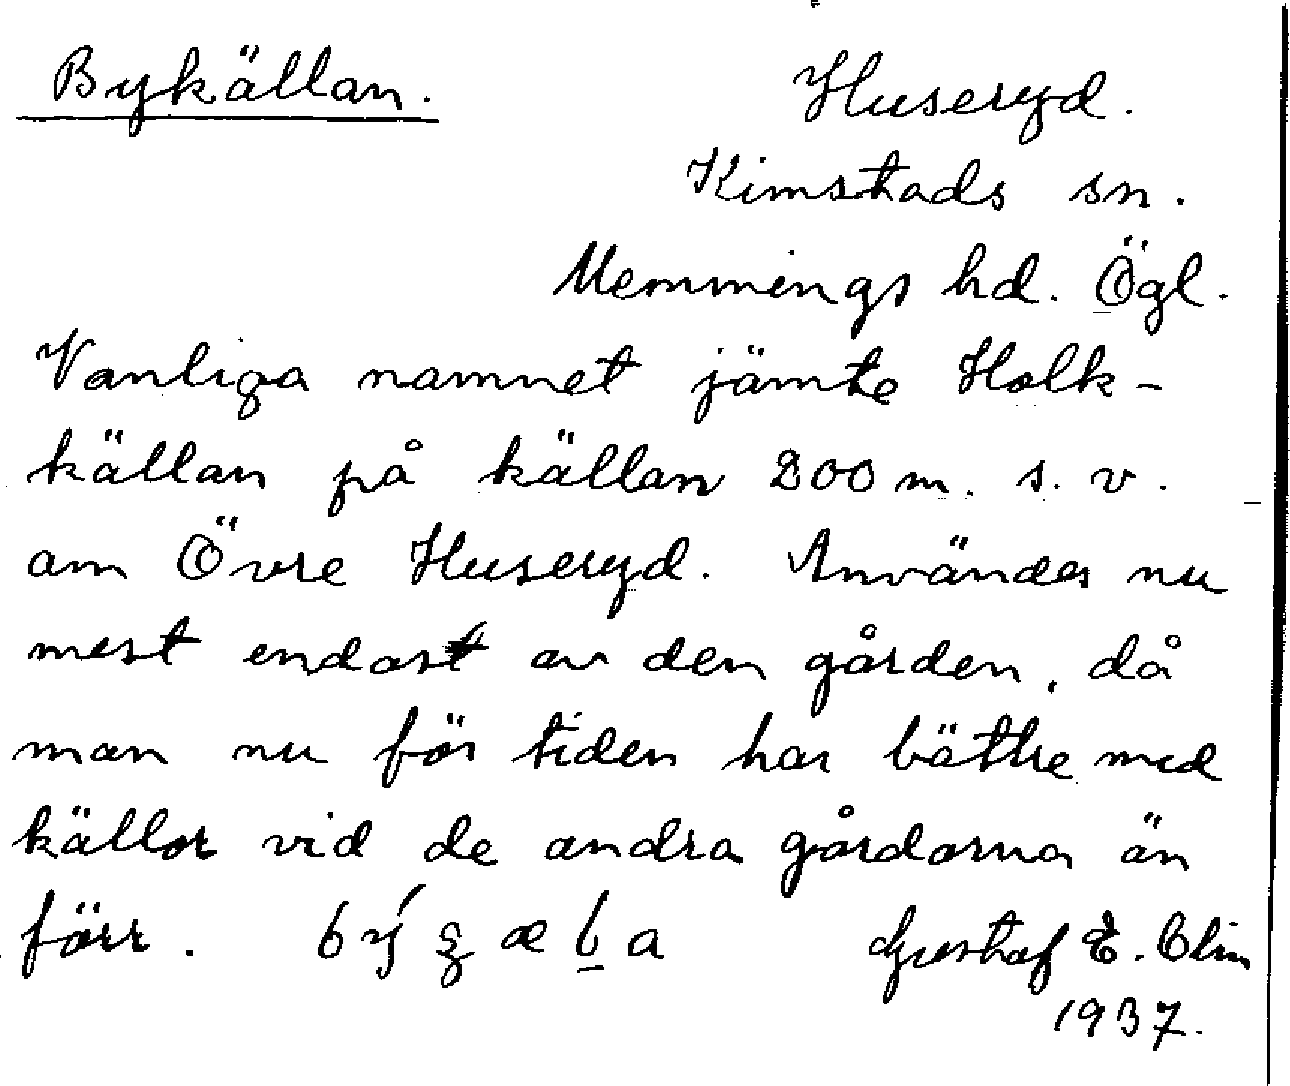 Bykällan.
Huseryd.
Kimstads sn.
Memmings hd. Ögl.
Vanliga namnet jämte Holk-
källan på källan 200 m. s. v.
om Övre Huseryd. Användes nu
mest endast av den gården, då
man nu för tiden har bättre med
källor vid de andra gårdarna än
förr.
Gustaf E. Olin
1937.